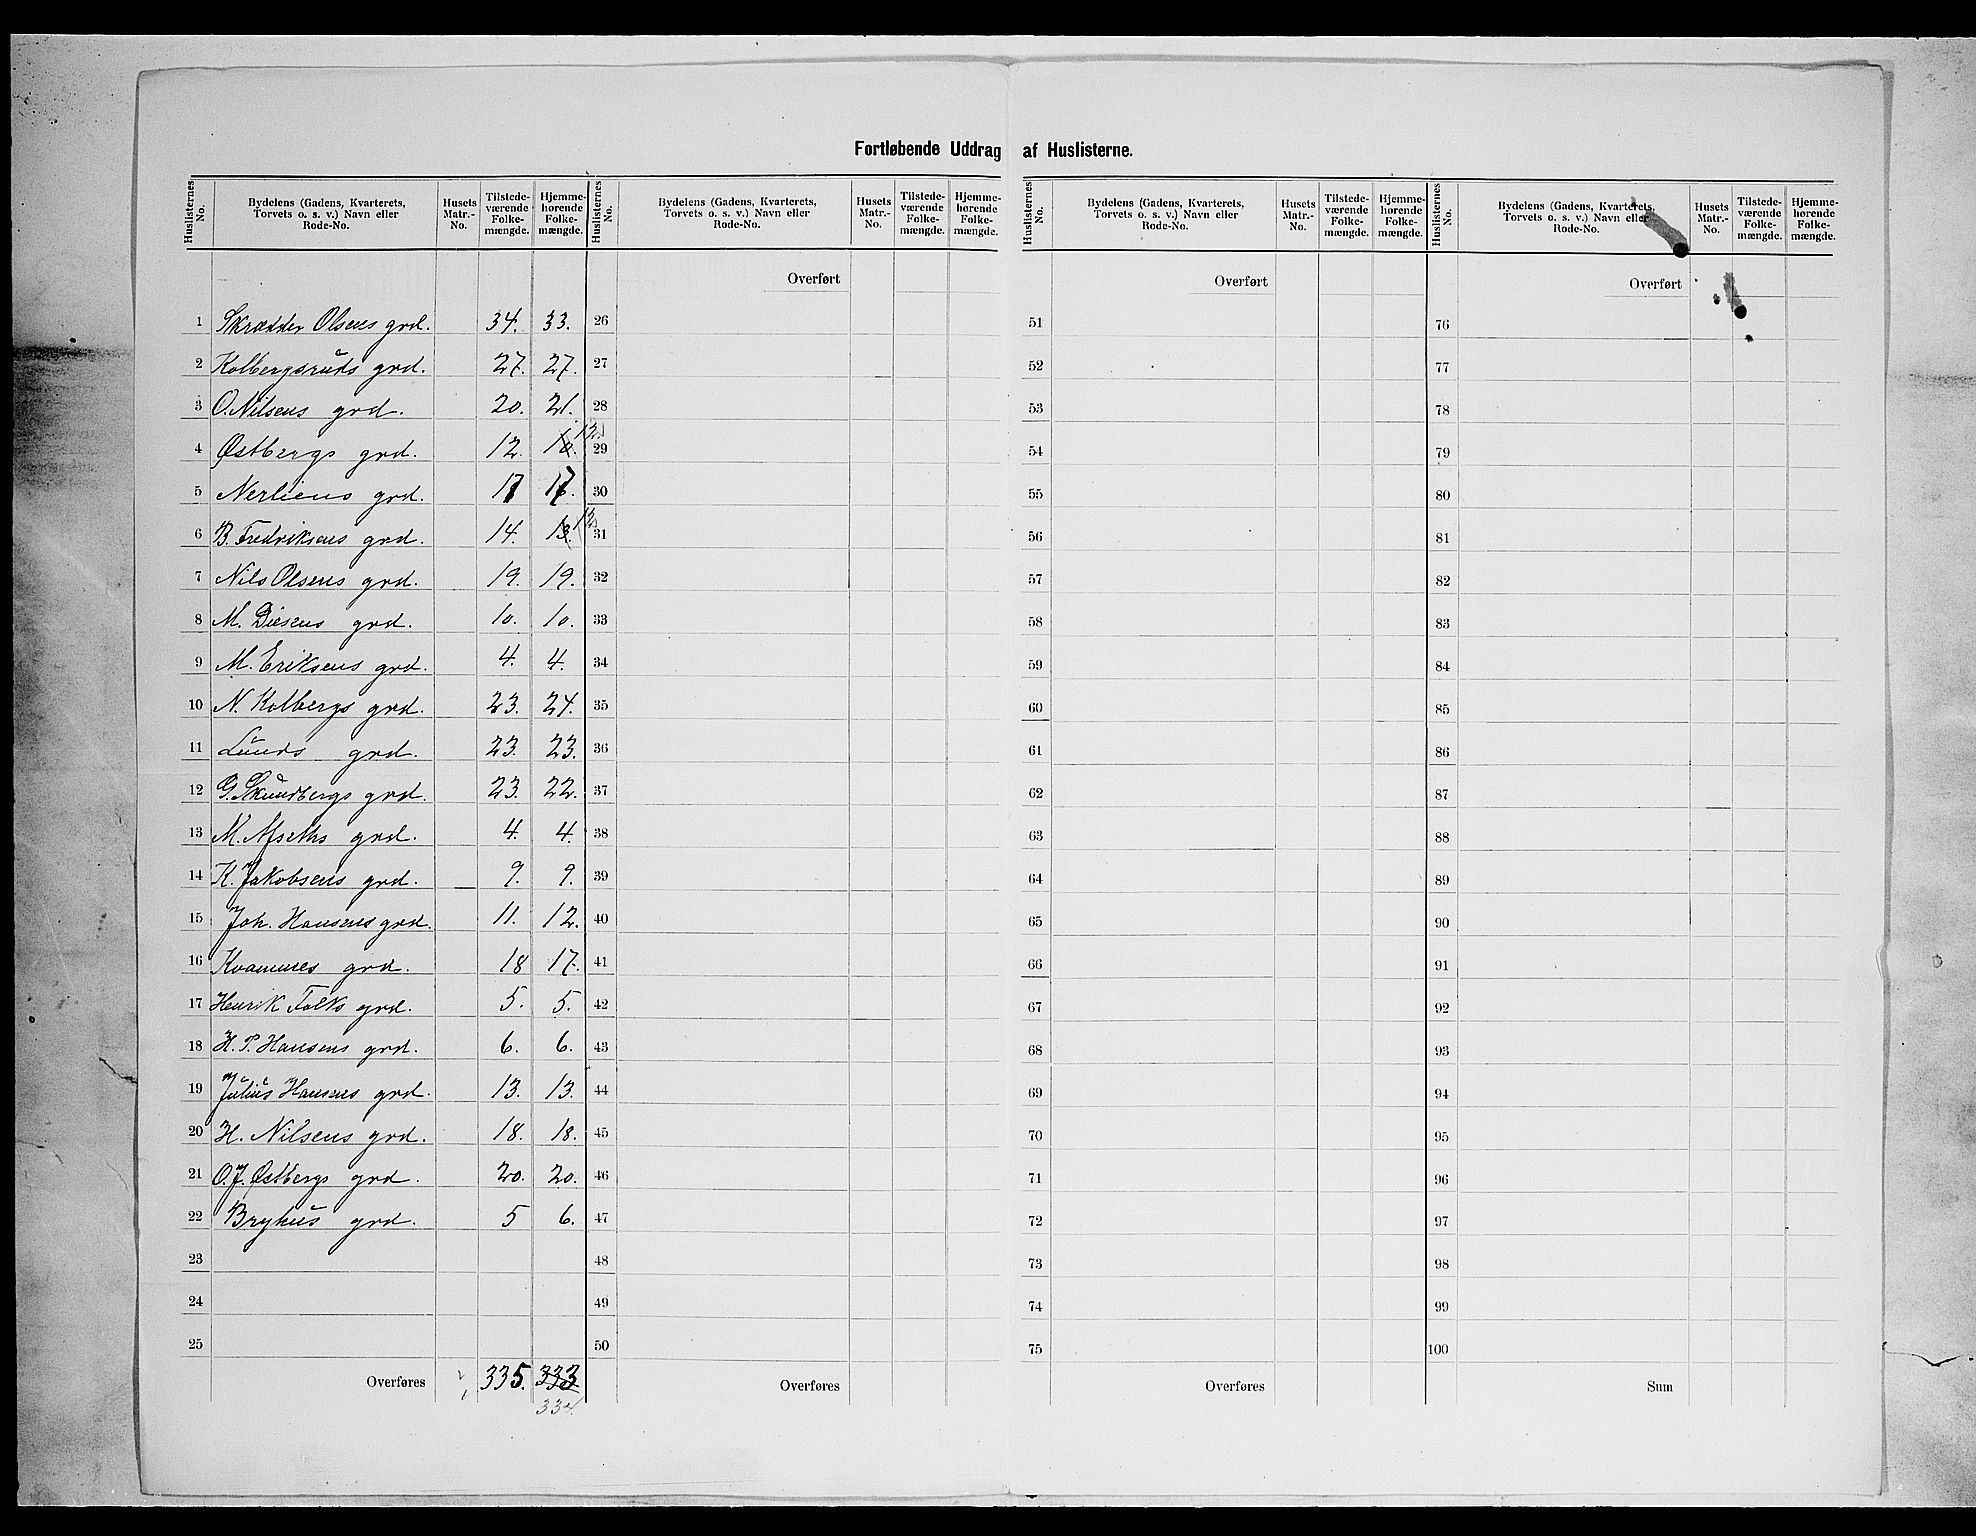 Fortløbende Uddrag af Huslisterne.
Huslisternes No. Bydelens (Gadens, Kvarterets, Torvets o. s. v.) Navn eller Rode-No. Husets Matr.-No. Tilstedeværende Folkemængde. Hjemmehørende Folkemængde.
Huslisternes No. Bydelens (Gadens, Kvarterets, Torvets o. s. v.) Navn eller Rode-No. Husets Matr.-No. Tilstedeværende Folkemængde. Hjemmehørende Folkemængde.
Huslisternes No. Bydelens (Gadens, Kvarterets, Torvets o. s. v.) Navn eller Rode-No. Husets Matr.-No. Tilstedeværende Folkemængde. Hjemmehørende Folkemængde.
Huslisternes No. Bydelens (Gadens, Kvarterets, Torvets o. s. v.) Navn eller Rode-No. Husets Matr.-No. Tilstedeværende Folkemængde. Hjemmehørende Folkemængde.
Overført Overført Overført
1 Skrædder Olsens grd. 34. 33. 26 51 76
2 Kolbergsruds grd. 27. 27. 27 52 77
3 O. Nilsens grd. 20. 21. 28 53 78
4 Østbergs grd. 12. 10. 12. 29 54 79
5 Nerliens grd. 17 17. 30 55 80
6 B. Fredriksens grd. 14. 13. 12. 31 56 81
7 Nils Olsens grd. 19. 19. 32 57 82
8 M. Diesens grd. 10. 10. 33 58 83
9 M. Eriksens grd. 4. 4. 34 59 84
10 N. Kolbergs grd. 23. 24. 35 60 85
11 Lunds grd. 23. 23. 36 61 86
12 G. Skundbergs grd. 23. 22. 37 62 87
13 M. grd. 4. 4. 38 63 88
14 K. Jakobsens grd. 9. 9. 39 64 89
15 Joh. Hansens grd. 11. 12. 40 65 90
16 Kvammes grd. 18 17. 41 66 91
17 Henrik Falks grd. 5. 5. 42 67 92
18 H. P. Hansens grd. 6. 6. 43 68 93
19 Julius Hansens grd. 13. 13. 44 69 94
20 H. Nilsens grd. 18. 18. 45 70 95
21 O. J. Østbergs grd. 20. 20. 46 71 96
22 Bryhus grd. 5 6. 47 72 97
23 48 73 98
24 49 74 99
25 50 75 100
Overføres 335. 333 Overføres Overføres Sum
334.